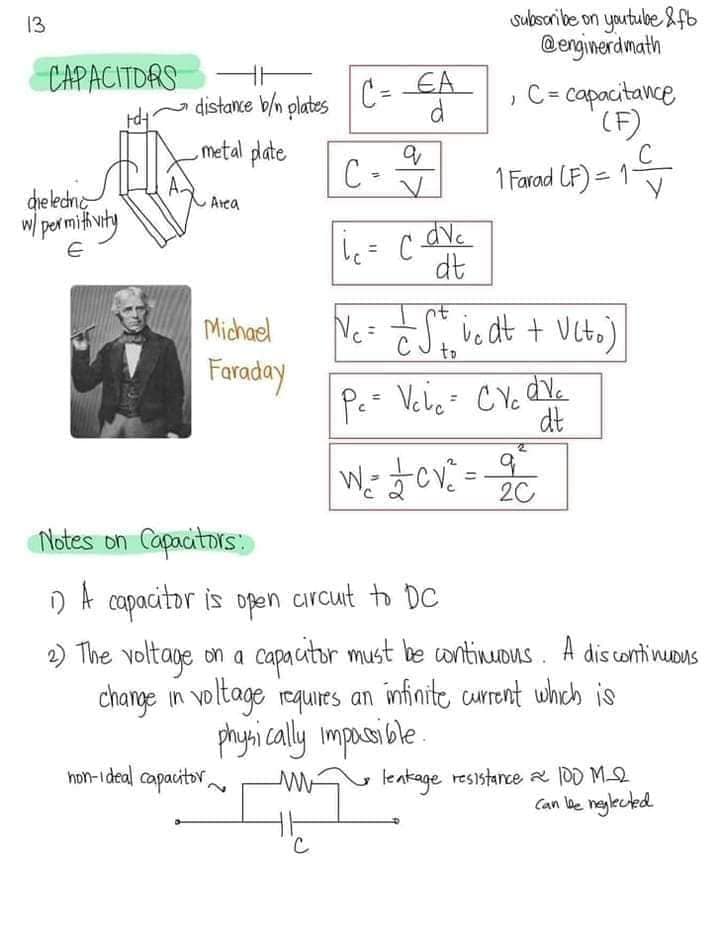 13
subscribe on youtube & fb
@enginerdmath
CAPACITORS
d
distance b/n plates
metal plate
A
Area
dielectric
w/ permittivity
ϵ
C = ϵA / d
, C = capacitance
(F)
C = q / V
1 Farad (F) = 1 C / V
i_c = C dV_c / dt
Michael
Faraday
V_c = 1/C ∫_{t_0}^{t} i_c dt + V(t_0)
P_c = V_c i_c = C V_c dV_c / dt
W_c = 1/2 C V_c² = q² / 2C
Notes on Capacitors:
1) A capacitor is open circuit to DC
2) The voltage on a capacitor must be continuous. A discontinuous
change in voltage requires an infinite current which is
physically impossible.
non-ideal capacitor
leakage resistance ≈ 100 MΩ
can be neglected
C